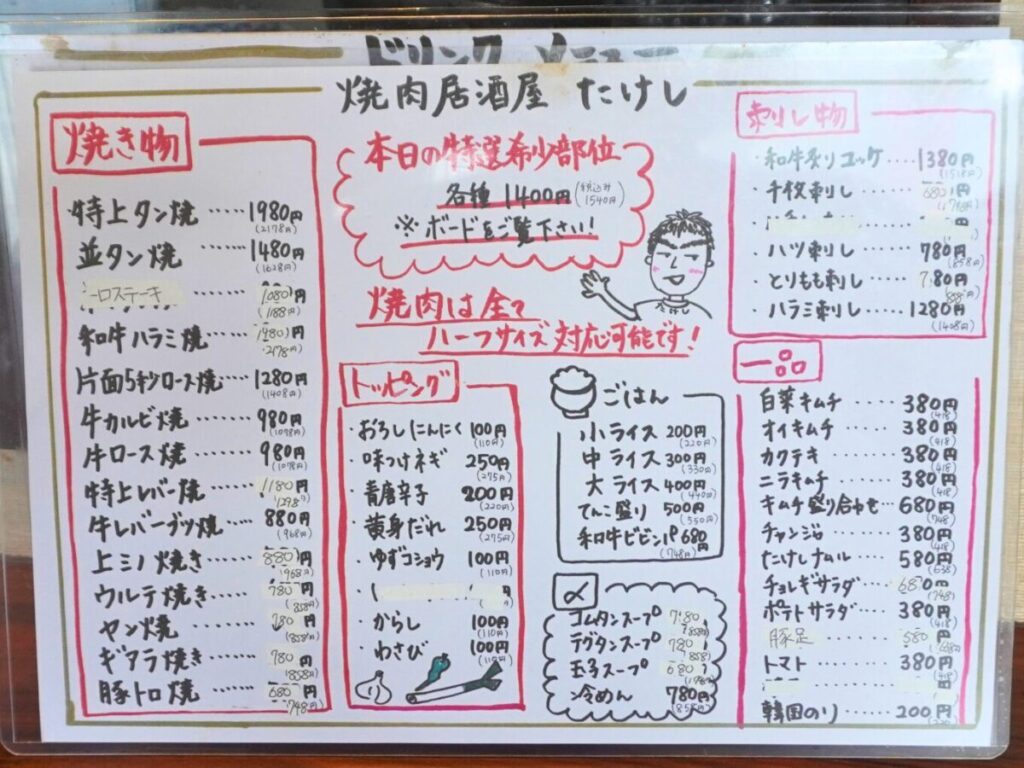 ドリンクメニュー
焼肉居酒屋 たけし
焼き物
特上タン焼……1980円
(2178円)
並タン焼……1480円
(1628円)
ロステーキ……1080円
(1188円)
和牛ハラミ焼……1980円
(2178円)
片面5秒ロース焼……1280円
(1408円)
牛カルビ焼……980円
(1078円)
牛ロース焼……980円
(1078円)
特上レバー焼……1180円
(1298円)
牛レバーブツ焼……880円
(968円)
上ミノ焼き……880円
(968円)
ウルテ焼き……780円
(858円)
ヤン焼……780円
(858円)
ギアラ焼き……780円
(858円)
豚トロ焼……680円
(748円)
本日の特選希少部位
各種 1400円(税込み1540円)
※ボードをご覧下さい!
たけし
焼肉は全て
ハーフサイズ対応可能です!
トッピング
・おろしにんにく 100円
(110円)
・味つけネギ 250円
(275円)
・青唐辛子 200円
(220円)
・黄身だれ 250円
(275円)
・ゆずコショウ 100円
(110円)
・からし 100円
(110円)
・わさび 100円
(110円)
ごはん
小ライス 200円
(220円)
中ライス 300円
(330円)
大ライス 400円
(440円)
てんこ盛り 500円
(550円)
和牛ビビンP 680円
(748円)
〆
コムタンスープ 780
(858円)
テグタンスープ 780
(858)
玉子スープ 680
冷めん 780円
(858円)
刺し物
・和牛炙りユッケ……1380円
(1518円)
・千枚刺し……円
・ハツ刺し……780円
(858円)
・とりもも刺し……780円
・ハラミ刺し……1280円
(1408円)
一品
白菜キムチ……380円
(418)
オイキムチ……380円
(418)
カクテキ……380円
(418)
ニラキムチ……380円
(418)
キムチ盛り合わせ…680円
(748)
チャンジャ……380円
(418)
たけしナムル……580円
(638)
チョレギサラダ……680円
(748)
ポテトサラダ……380円
(418)
豚足……580円
トマト……380円
(418)
韓国のり……200円
(220)